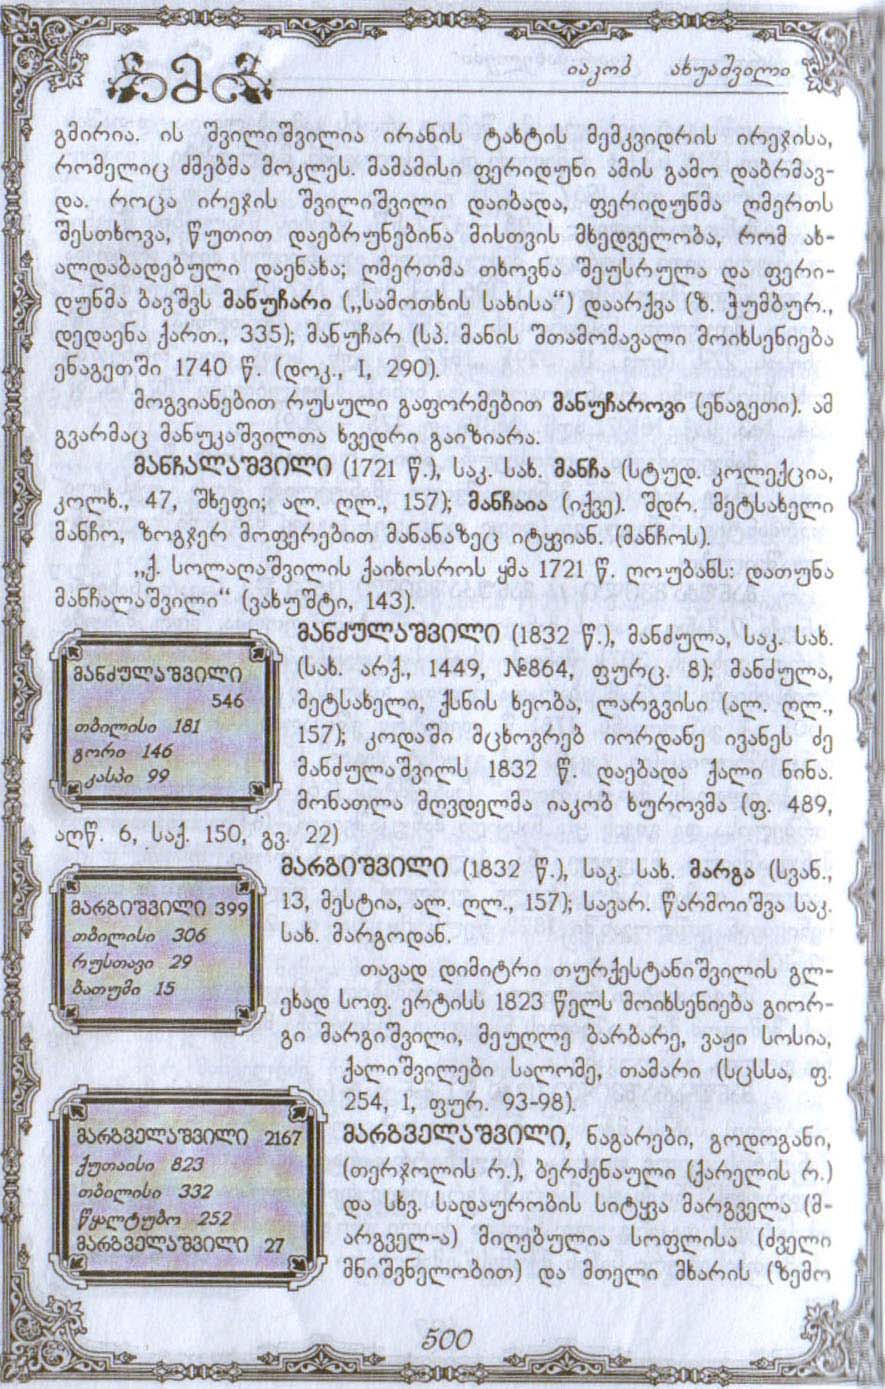 მ
იაკობ ახუაშვილი
გმირია. ის შვილიშვილია ირანის ტახტის მემკვიდრის ირეჯისა,
რომელიც ძმებმა მოკლეს. მამამისი ფერიდუნი ამის გამო დაბრმავ-
და. როცა ირეჯის შვილიშვილი დაიბადა, ფერიდუნმა ღმერთს
შესთხოვა, წუთით დაებრუნებინა მისთვის მხედველობა, რომ ახ-
ალდაბადებული დაენახა; ღმერთმა თხოვნა შეუსრულა და ფერი-
დუნმა ბავშვს მანუჩარი („სამოთხის სახისა“) დაარქვა (ზ. ჭუმბურ.,
დედაენა ქართ., 335); მანუჩარ (სპ. მანის შთამომავალი მოიხსენიება
ენაგეთში 1740 წ. (დოკ., I, 290).
მოგვიანებით რუსული გაფორმებით მანუჩაროვი (ენაგეთი). ამ
გვარმაც მანუკაშვილთა ხვედრი გაიზიარა.
მანჩალაშვილი (1721 წ.), საკ. სახ. მანჩა (სტუდ. კოლექცია,
კოლხ., 47, შხეფი; ალ. ღლ., 157); მანჩაია (იქვე). შდრ. მეტსახელი
მანჩო, ზოგჯერ მოფერებით მანანაზეც იტყვიან. (მანჩოს).
„ქ. სოლაღაშვილის ქაიხოსროს ყმა 1721 წ. ღოუბანს: დათუნა
მანჩალაშვილი“ (ვახუშტი, 143).
მანძულაშვილი (1832 წ.), მანძულა, საკ. სახ.
(სახ. არქ., 1449, №864, ფურც. 8); მანძულა,
მეტსახელი, ქსნის ხეობა, ლარგვისი (ალ. ღლ.,
157); კოდაში მცხოვრებ იორდანე ივანეს ძე
მანძულაშვილს 1832 წ. დაებადა ქალი ნინა.
მონათლა მღვდელმა იაკობ ხუროვმა (ფ. 489,
აღწ. 6, საქ. 150, გვ. 22)
მანძულაშვილი
546
თბილისი 181
გორი 146
კასპი 99
მარგიშვილი (1832 წ.), საკ. სახ. მარგა (სვან.,
13, მესტია, ალ. ღლ., 157); სავარ. წარმოიშვა საკ.
სახ. მარგოდან.
მარგიშვილი 399
თბილისი 306
რუსთავი 29
ბათუმი 15
თავად დიმიტრი თურქესტანიშვილის გლ-
ეხად სოფ. ერტისს 1823 წელს მოიხსენიება გიორ-
გი მარგიშვილი, მეუღლე ბარბარე, ვაჟი სოსია,
ქალიშვილები სალომე, თამარი (სცსსა, ფ.
254, I, ფურ. 93-98).
მარგველაშვილი, ნაგარები, გოდოგანი,
(თერჯოლის რ.), ბერძენაული (ქარელის რ.)
და სხვ. სადაურობის სიტყვა მარგველა (მ-
არგველ-ა) მიღებულია სოფლისა (ძველი
მნიშვნელობით) და მთელი მხარის (ზემო
მარგველაშვილი 2167
ქუთაისი 823
თბილისი 332
წყალტუბო 252
მარგველაშვილი 27
500